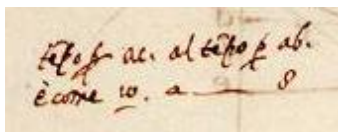 tẽpo p̱ ac. al tẽpo p̱ ab.
è come 10. a ——— 8